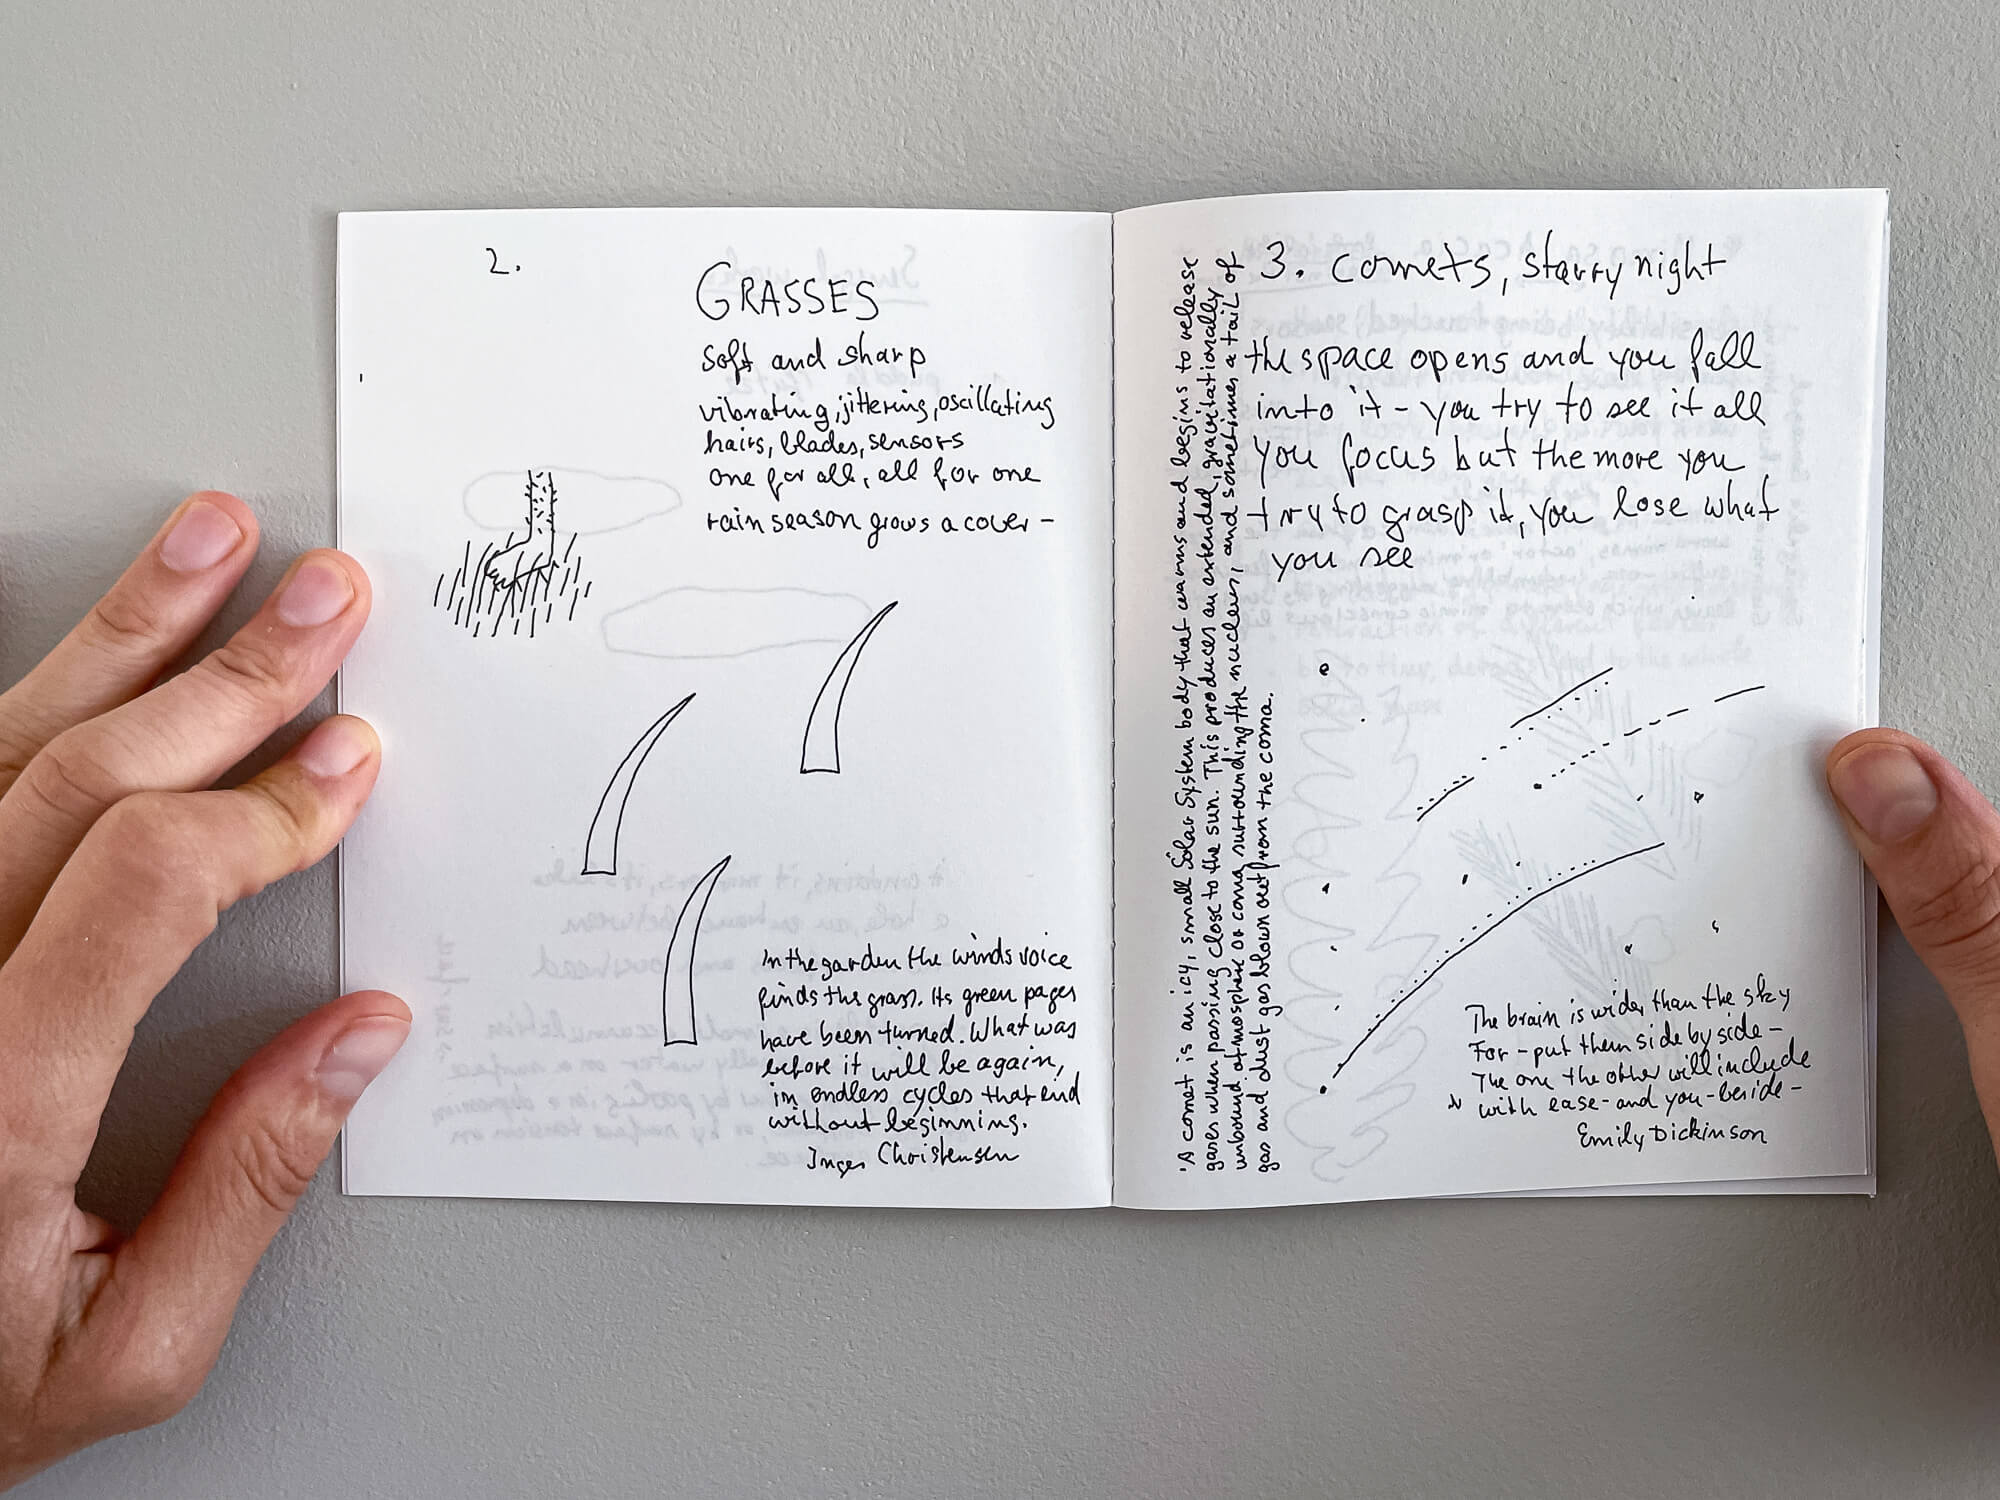 2.
GRASSES
soft and sharp
vibrating, jittering, oscillating
hairs, blades, sensors
one for all, all for one
rain season grows a cover –
In the garden the winds voice
finds the grass. Its green pages
have been turned. What was
before it will be again,
in endless cycles that end
without beginning.
Inger Christensen
'A comet is an icy, small Solar System body that warms and begins to release
gases when passing close to the sun. This produces an extended, gravitationally
unbound atmosphere or coma surrounding the nucleus, and sometimes a tail of
gas and dust gas blown out from the coma.
3. comets, starry night
the space opens and you fall
into it – you try to see it all
you focus but the more you
try to grasp it, you lose what
you see
The brain is wider than the sky
For – put them side by side –
The one the other will include
with ease – and you – beside –
Emily Dickinson